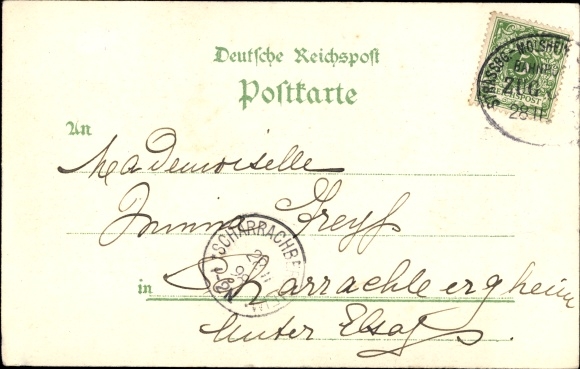 Deutsche Reichspost
Postkarte
STRASSBG.-MOLSHEIM
BAHNPOST
ZUG
28 11
5
REICHSPOST
An
Mademoiselle
Dreyfs
SCHARRACHBERGHEIM
in Scharrachbergheim
Unter Elsaß